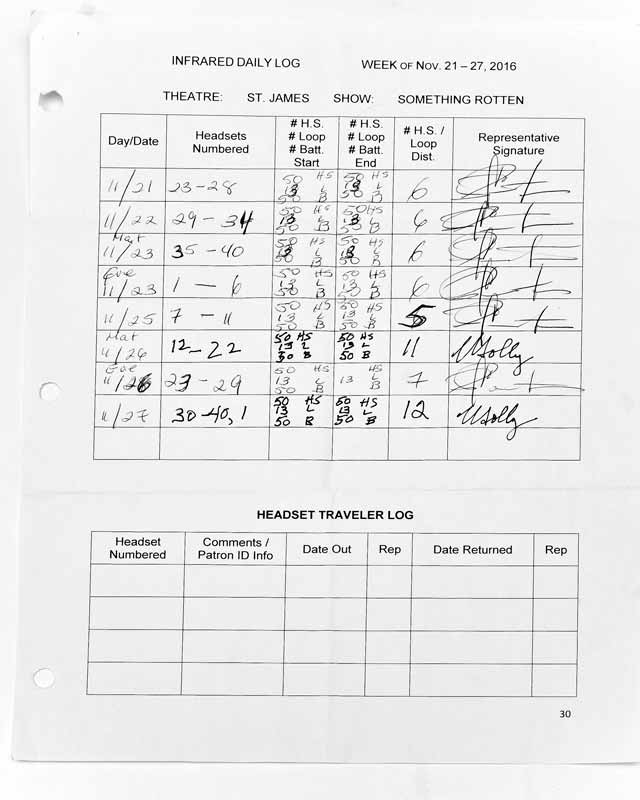 INFRARED DAILY LOG WEEK OF NOV. 21 – 27, 2016
THEATRE: ST. JAMES SHOW: SOMETHING ROTTEN
Day/Date Headsets Numbered # H.S. # Loop # Batt. Start # H.S. # Loop # Batt. End # H.S. / Loop Dist. Representative Signature
11/21 23-28 50 HS 13 L 50 B 50 HS 13 L 50 B 6
11/22 29-34 50 HS 13 L 50 B 50 HS 13 L 50 B 6
Mat 11/23 35-40 50 HS 13 L 50 B 50 HS 13 L 50 B 6
Eve 11/23 1-6 50 HS 13 L 50 B 50 HS 13 L 50 B 6
11/25 7-11 50 HS 13 L 50 B 50 HS 13 L 50 B 5
Mat 11/26 12-22 50 HS 13 L 50 B 50 HS 13 L 50 B 11
Eve 11/26 23-29 50 HS 13 L 50 B HS 13 L B 7
11/27 30-40, 1 50 HS 13 L 50 B 50 HS 13 L 50 B 12
HEADSET TRAVELER LOG
Headset Numbered Comments / Patron ID Info Date Out Rep Date Returned Rep
30